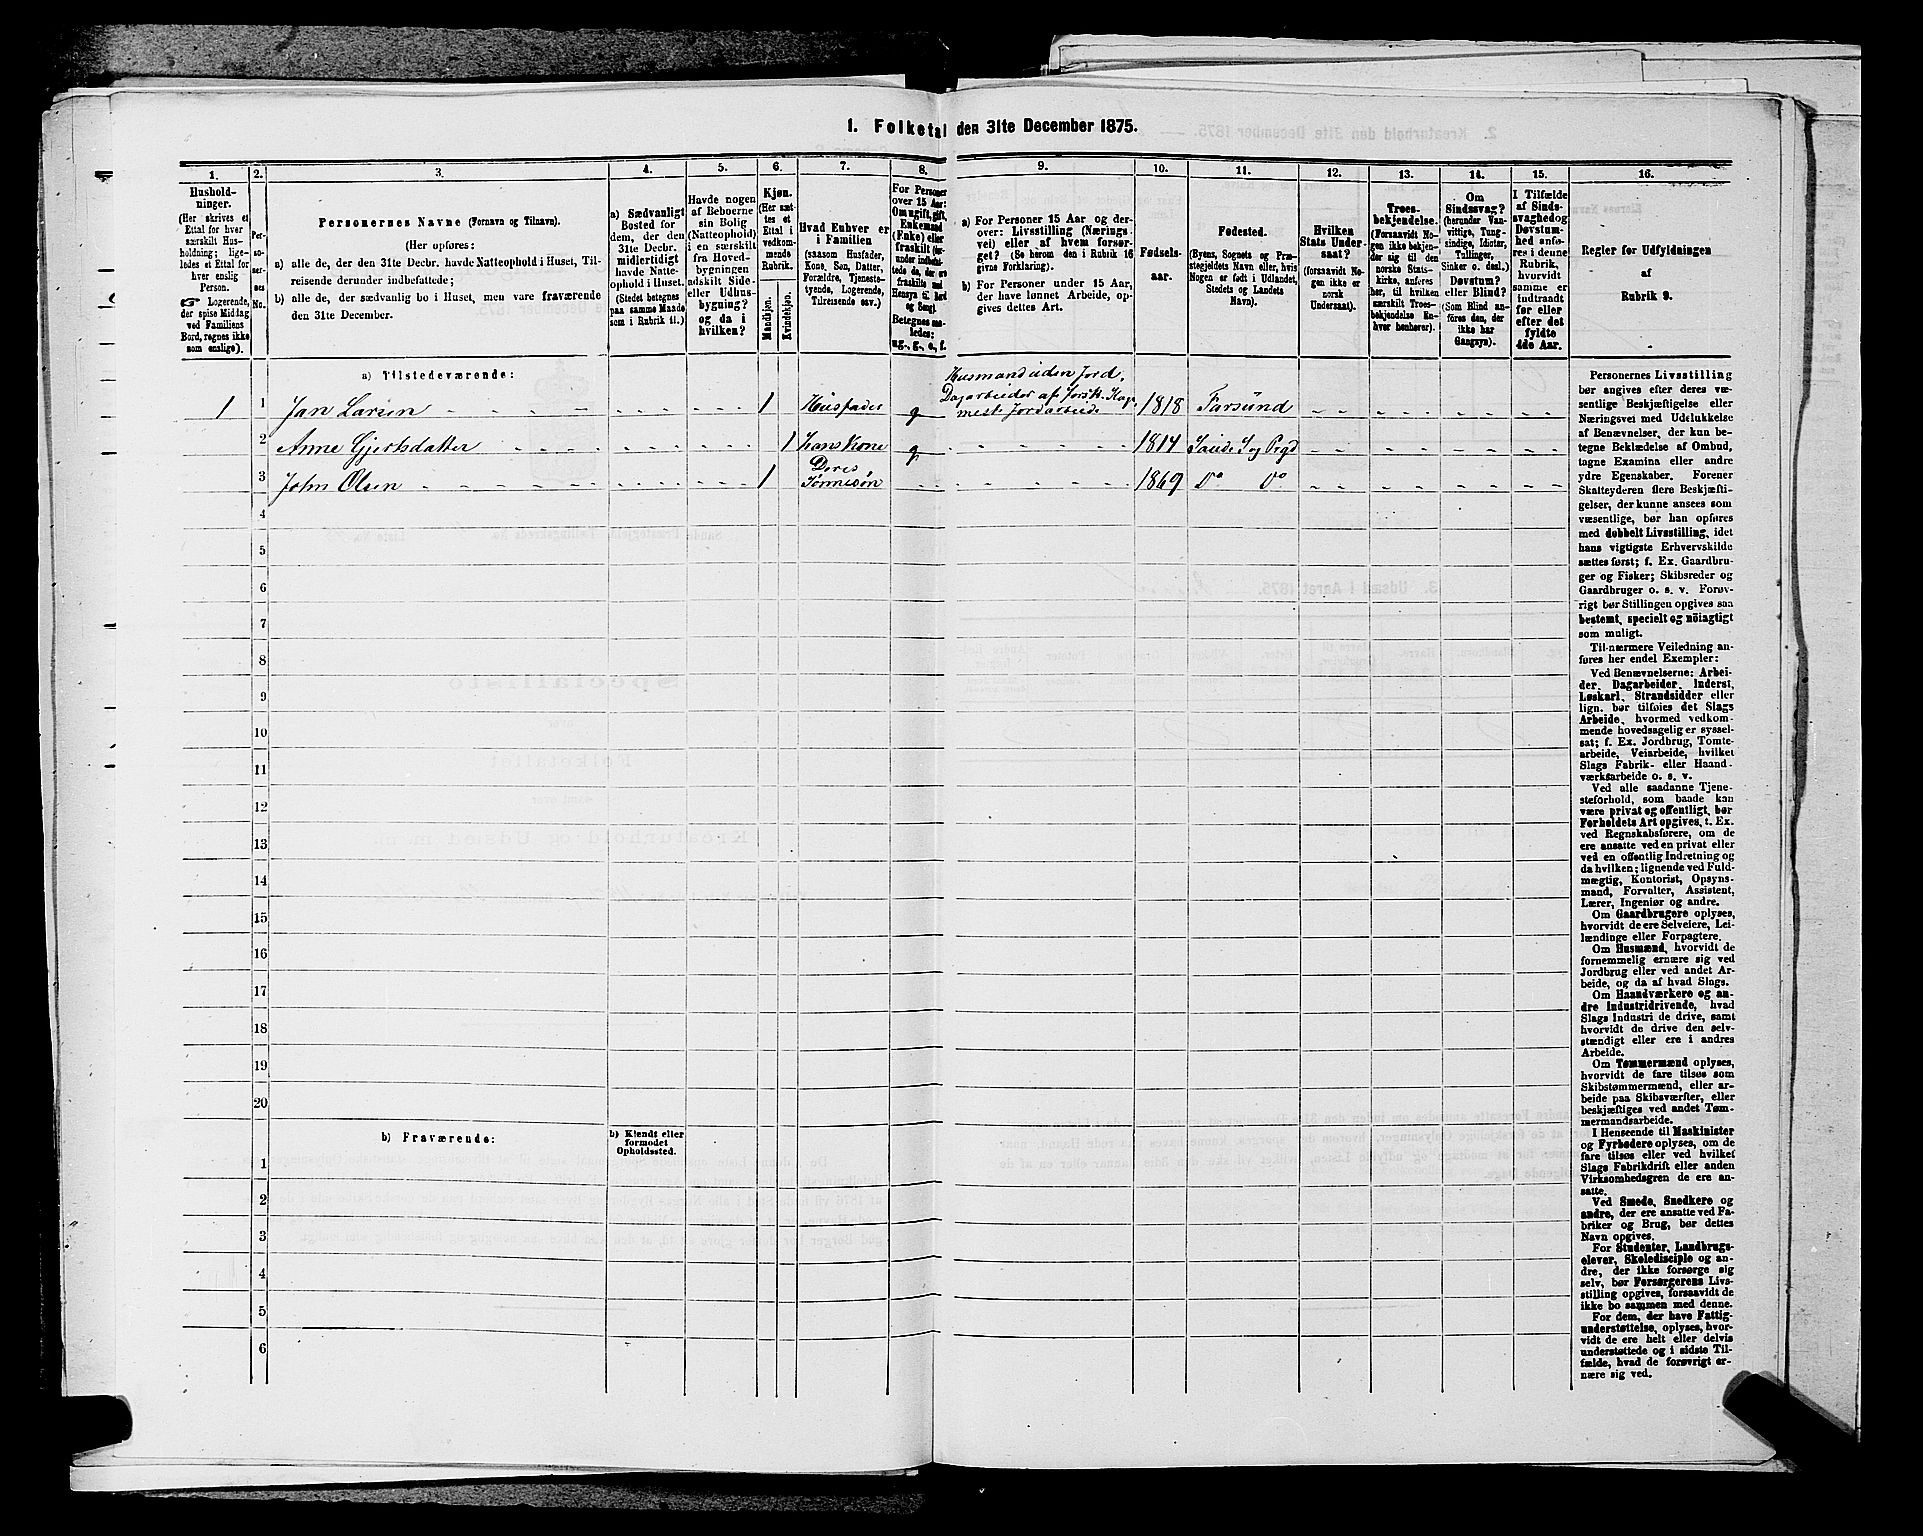 1. Folketal den 31te December 1875.
1.
2.
3.
4.
5.
6.
7.
8.
9.
10.
11.
12.
13.
14.
15.
16.
Hushold-
ninger.
(Her skrives et
Ettal for hver
særskilt Hus-
holdning; lige-
ledes et Ettal for
hver enslig
Person.
Logerende,
der spise Middag
ved Familiens
Bord, regnes ikke
som enslige).
Per-
so-
ner-
nes
No.
Personernes Navne (Fornavn og Tilnavn).
(Her opføres:
a) alle de, der den 31te Decbr. havde Natteophold i Huset, Til-
reisende derunder indbefattede;
b) alle de, der sædvanlig bo i Huset, men vare fraværende
den 31te December.
a) Sædvanligt
Bosted for
dem, der den
31te Decbr.
midlertidigt
havde Natte-
ophold i Huset.
(Stedet betegnes
paa samme Maade
som i Rubrik 11.)
Havde nogen
af Beboerne
sin Bolig
(Natteophold)
i en særskilt
fra Hoved-
bygningen
adskilt Side-
eller Udhus-
bygning?
og da i
hvilken?
Kjøn.
(Her sæt-
tes et
Ettal i
vedkom-
mende
Rubrik.
Mandkjøn.
Kvindekjøn.
Hvad Enhver er
i Familien
(saasom Husfader,
Kone, Søn, Datter,
Forældre, Tjeneste-
tyende, Logerende,
Tilreisende osv.)
For Personer
over 15 Aar:
Om ugift, gift,
Enkemand
(Enke) eller
fraskilt
Betegnes saa-
ledes:
ug., g., e., f.
a) For Personer 15 Aar og der-
over: Livsstilling (Nærings-
vei) eller af hvem forsør-
get? (Se herom den i Rubrik 16
givne Forklaring).
b) For Personer under 15 Aar,
der have lønnet Arbeide, op-
gives dettes Art.
Fødsels-
aar.
Fødested.
(Byens, Sognets og Præ-
stegjeldets Navn eller, hvis
Nogen er født i Udlandet,
Stedets og Landets
Navn).
Hvilken
Stats Under-
saat?
(forsaavidt No-
gen ikke er
norsk
Undersaat).
Troes-
bekjendelse.
(Forsaavidt No-
gen ikke bekjen-
der sig til den
norske Stats-
kirke, anføres
her, til hvilken
særskilt Troes-
bekjendelse En-
hver henhører).
Om
Sindssvag?
(herunder Van-
vittige, Tung-
sindige, Idioter,
Tullinger,
Sinker o. desl.)
Døvstum?
eller Blind?
(Som Blind an-
føres den, der
ikke har
Gangsyn).
I Tilfælde
af Sinds-
svaghed og
Døvstum-
hed anfø-
res i denne
Rubrik,
hvorvidt
samme er
indtraadt
før eller
efter det
fyldte
4de Aar.
Regler for Udfyldningen
af
Rubrik 9.
a) Tilstedeværende:
1 1 Jan Larsen 1 Husfader g Husmand uden Jord, 1818 Farsund
2 Anne Gjertsdatter 1 hans Kone g 1814 Sande S. og Prgd
3 John Olsen 1 Deres Sønnesøn 1869 Do Do
4
5
6
7
8
9
10
11
12
13
14
15
16
17
18
19
20
b) Fraværende:
b) Kjendt eller
formodet
Opholdssted.
1
2
3
4
5
6
Personernes Livsstilling
bør angives efter deres væ-
sentlige Beskjæftigelse eller
Næringsvei med Udelukkelse
af Benævnelser, der kun be-
tegne Beklædelse af Ombud,
tagne Examina eller andre
ydre Egenskaber. Forener
Skatteyderen flere Beskjæfti-
gelser, der kunne ansees som
væsentlige, bør han opføres
med dobbelt Livsstilling, idet
hans vigtigste Erhvervskilde
sættes først; f. Ex. Gaardbru-
ger og Fisker; Skibsreder og
Gaardbruger o. s. v. Forøv-
rigt bør Stillingen opgives saa
bestemt, specielt og nöiagtigt
som muligt.
Til nærmere Veiledning an-
føres her endel Exempler:
Ved Benævnelserne: Arbei-
der, Dagarbeider, Inderst,
Løskarl, Strandsidder eller
lign. bør tilføies det Slags
Arbeide, hvormed vedkom-
mende hovedsagelig er syssel-
sat; f. Ex. Jordbrug, Tomte-
arbeide, Veiarbeide, hvilket
Slags Fabrik- eller Haand-
værksarbeide o. s. v.
Ved alle saadanne Tjene-
steforhold, som baade kan
være privat og offentligt, bør
Forholdets Art opgives, f. Ex.
ved Regnskabsførere, om de
ere ansatte ved en privat eller
ved en offentlig Indretning og
da hvilken; lignende ved Fuld-
mægtig, Kontorist, Opsyns-
mand, Forvalter, Assistent,
Lærer, Ingeniør og andre.
Om Gaardbrugere oplyses,
hvorvidt de ere Selveiere, Lei-
lændinge eller Forpagtere.
Om Husmænd, hvorvidt de
fornemmelig ernære sig ved
Jordbrug eller ved andet Ar-
beide, og da af hvad Slags.
Om Haandværkere og an-
dre Industridrivende, hvad
Slags Industri de drive, samt
hvorvidt de drive den selv-
stændigt eller ere i andres
Arbeide.
Om Tømmermænd oplyses,
hvorvidt de fare tilsøs som
Skibstømmermænd, eller ar-
beide paa Skibsværfter, eller
beskjæftiges ved andet Tøm-
mermandsarbeide.
I Henseende til Maskinister
og Fyrbødere oplyses, om de
fare tilsøs eller ved hvilket
Slags Fabrikdrift eller anden
Virksomhedsgren de ere an-
satte.
Ved Smede, Snedkere og
andre, der ere ansatte ved Fa-
briker og Brug, bør dettes
Navn opgives.
For Studenter, Landbrugs-
elever, Skoledisciple og an-
dre, der ikke forsørge sig
selv, bør Forsørgerens Livs-
stilling opgives, forsaavidt de
ikke bo sammen med denne.
For dem, der have Fattig-
understøttelse, oplyses, hvor-
vidt de ere helt eller delvis
understøttede og i sidste Til-
fælde, hvad de forøvrigt er-
nære sig ved.